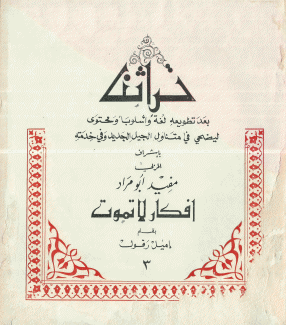 تراثنا
بعد تطويعه لغة وأسلوبا ومحتوى
ليضحي في متناول الجيل الجديد وفي خدمته
بإشراف
مفيد أبو مراد
افكار لا تموت
بقلم
٣